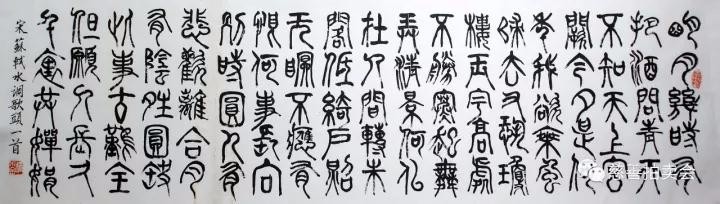 明月幾時有
把酒問青天
不知天上宮
闕今夕是何
年我欲乘風
歸去又恐瓊
樓玉宇高處
不勝寒起舞
弄清景何似
在人間轉朱
閣低綺戶照
無眠不應有
恨何事長向
別時圓人有
悲歡離合月
有陰晴圓缺
此事古難全
但願人長久
千里共嬋娟
宋蘇軾水調歌頭一首
慈善拍卖会